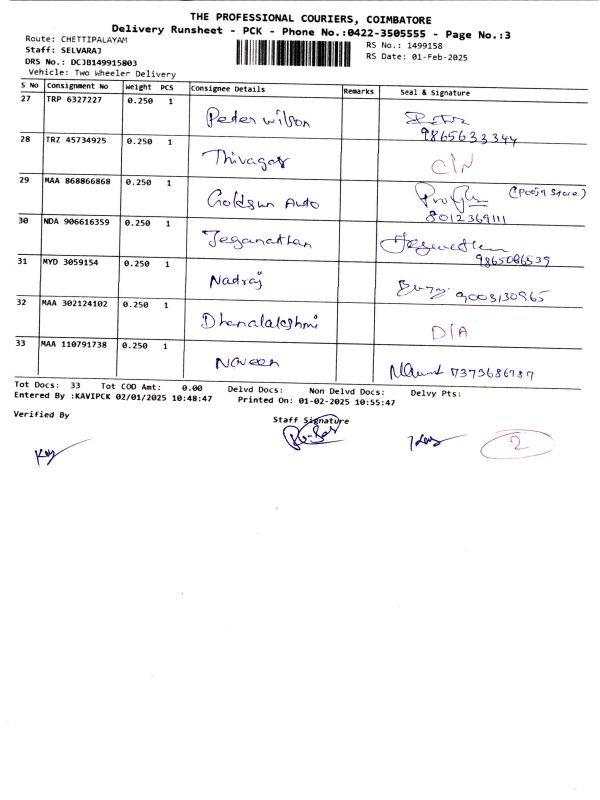 THE PROFESSIONAL COURIERS, COIMBATORE
Delivery Runsheet - PCK - Phone No.:0422-3505555 - Page No.:3
Route: CHETTIPALAYAM RS No.: 1499158
Staff: SELVARAJ RS Date: 01-Feb-2025
DRS No.: DCJB149915803
Vehicle: Two Wheeler Delivery
S No Consignment No Weight PCS Consignee Details Remarks Seal & Signature
27 TRP 6327227 0.250 1 Peter wilson 9865633344
28 TRZ 45734925 0.250 1 Thivagar C/N
29 MAA 868866868 0.250 1 Goldsun Auto (Pooja Store) 8012369111
30 NDA 906616359 0.250 1 Jeganathan Jeganathan 9865086539
31 MYD 3059154 0.250 1 Nadraj 9003130965
32 MAA 302124102 0.250 1 Dhanalakshmi D/A
33 MAA 110791738 0.250 1 Naveen 7373686787
Tot Docs: 33 Tot COD Amt: 0.00 Delvd Docs: Non Delvd Docs: Delvy Pts:
Entered By :KAVIPCK 02/01/2025 10:48:47 Printed On: 01-02-2025 10:55:47
Verified By Staff Signature
2